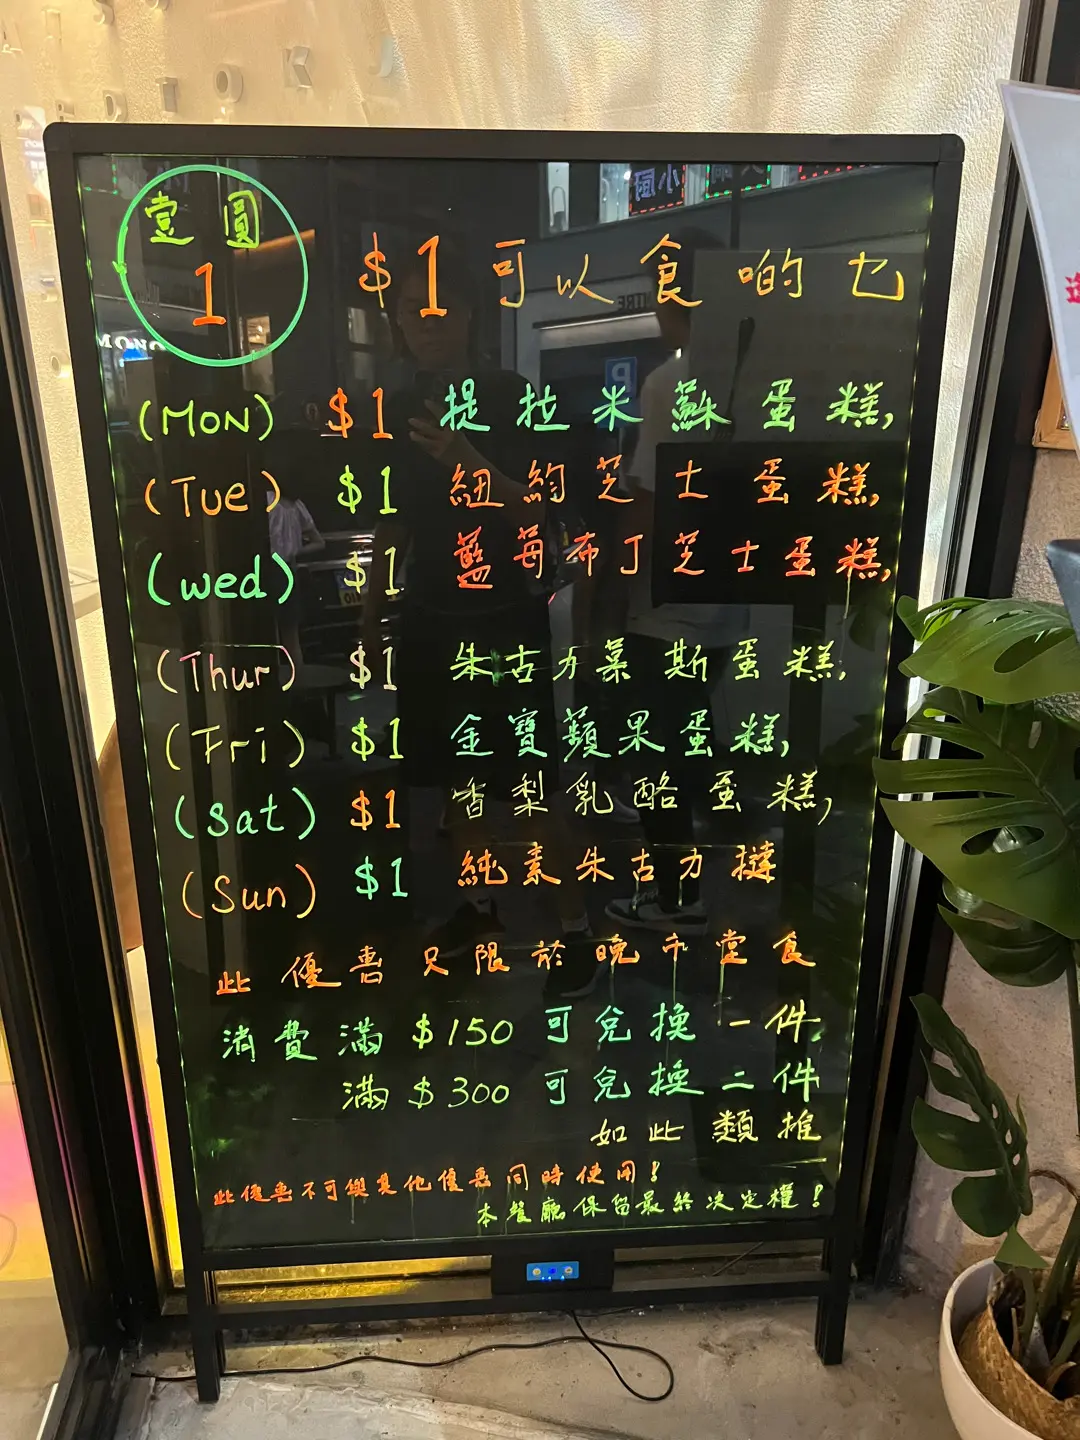 壹圓
1
$1可以食啲乜
(MON) $1 提拉米蘇蛋糕,
(Tue) $1 紐約芝士蛋糕,
(wed) $1 藍莓布丁芝士蛋糕,
(Thur) $1 朱古力慕斯蛋糕,
(Fri) $1 金寶蘋果蛋糕,
(Sat) $1 香梨乳酪蛋糕,
(Sun) $1 純素朱古力撻
此優惠只限於晚市堂食
消費滿$150可兌換一件,
滿$300可兌換二件
如此類推
此優惠不可與其他優惠同時使用!
本餐廳保留最終决定權!
MONO
小厨
P